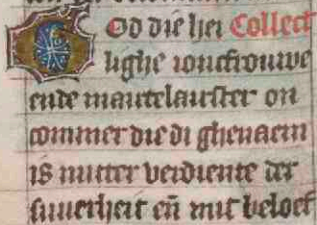 God die hei Collect
lighe ioncfrouwe
ende martelarster on
commer die di ghenaem
is mitter verdiente der
suuerheit en̄ mit beloef